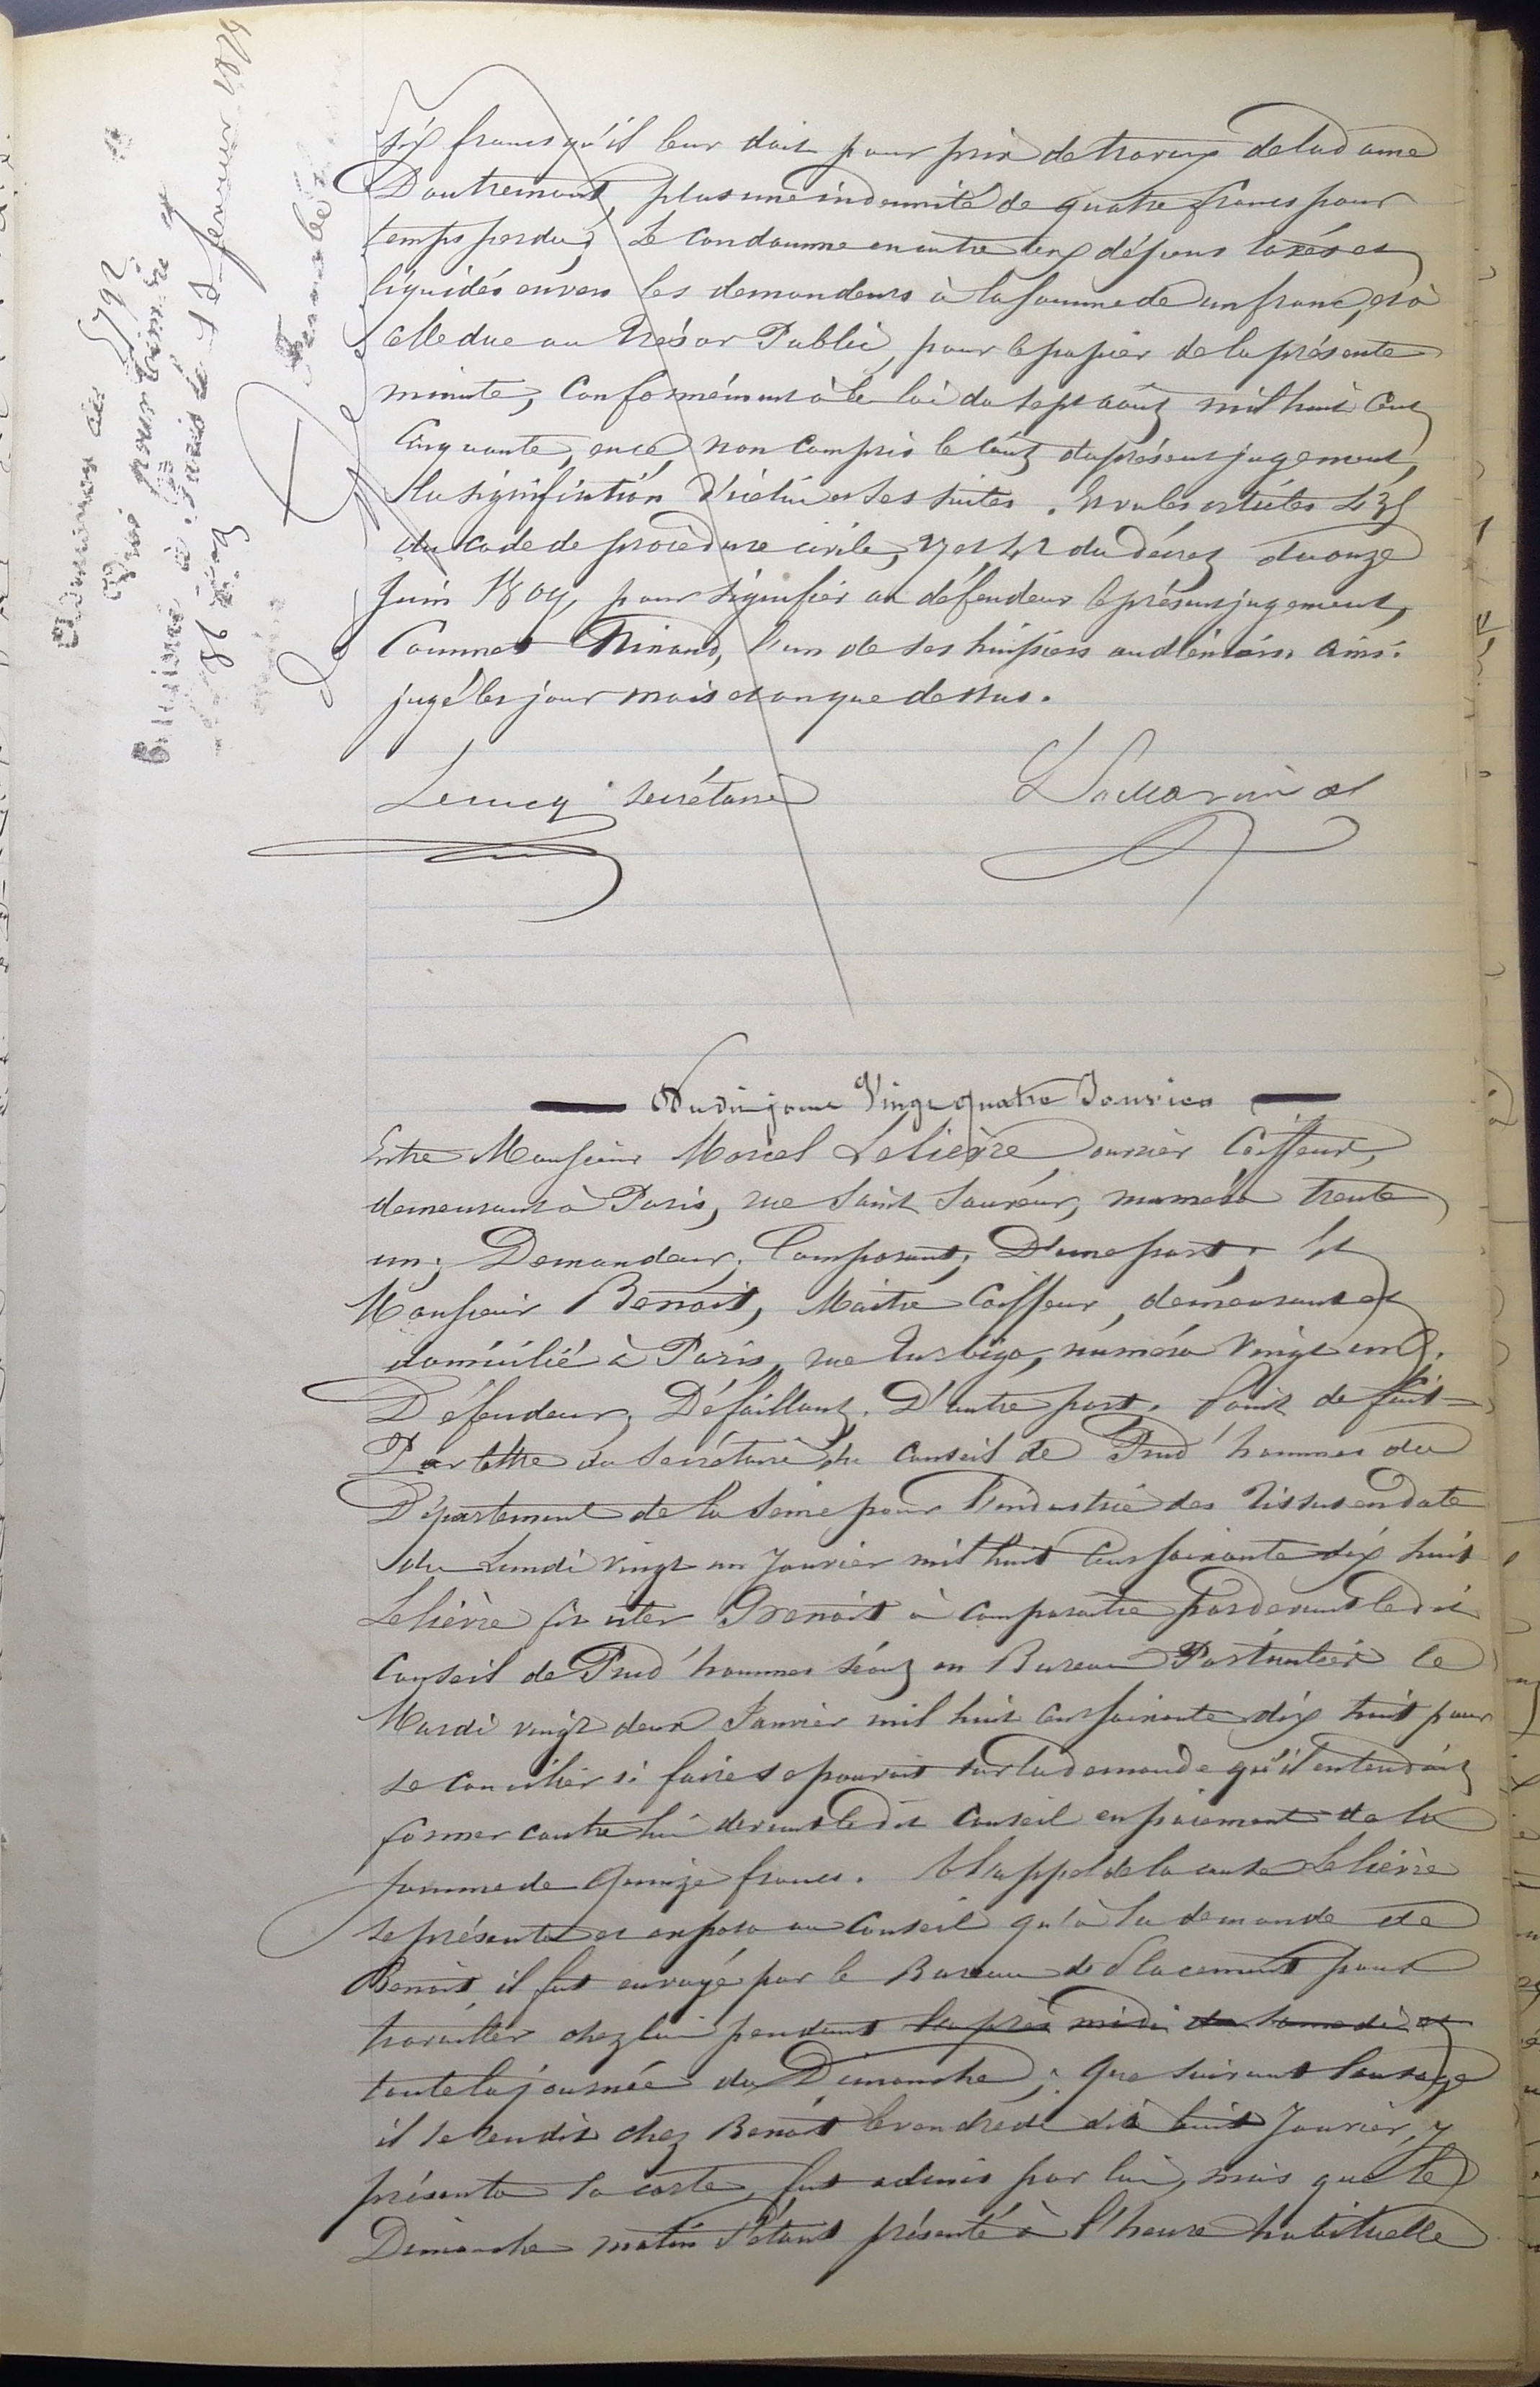 six francs qu'il leur doit pour prix de travaux de la dame
Dautremont, plus une indemnité de quatre francs pour
temps perdu; Le condamne en outre aux dépens taxés et
liquidés envers les demandeurs à la somme de un franc, et à
celle due au Trésor Public, pour le papier de la présente
minute, conformément à la loi du sept août mil huit cent
cinquante, en ce non compris le coût du présent jugement,
la signification d'icelui et ses suites. Et vu les articles 435
du code de procédure civile, 27 et 42 du décret du onze
Juin 1809, pour signifier au défendeur le présent jugement,
Commet Thinand, l'un de ses huissiers audienciers. Ainsi
jugé les jour mois et an que dessus.
Lecucq secrétaire
Du dit jour Vingt quatre Janvier
Entre Monsieur Marcel Lelièvre, ouvrier Coiffeur,
demeurant à Paris, rue Saint Sauveur, numéro trente
un; Demandeur; Comparant; D'une part; Et
Monsieur Benoit, Maître Coiffeur, demeurant et
domicilié à Paris, rue Turbigo, numéro Vingt un;
Défendeur; Défaillant; D'autre part. Point de fait =
Par lettre du Secrétaire du Conseil de Prud'hommes du
Département de la Seine pour l'industrie des tissus en date
du Lundi vingt un Janvier mil huit cent soixante dix huit
Lelièvre fit citer Benoit à comparaître par devant le dit
Conseil de Prud'hommes séant en Bureau Particulier le
Mardi vingt deux Janvier mil huit cent soixante dix huit pour
se concilier si faire se pouvait sur la demande qu'il entendait
former contre lui devant le dit Conseil en paiement de la
somme de Quinze francs. A l'appel de la cause Lelièvre
se présenta et exposa au Conseil qu'à la demande de
Benoit il fut envoyé par le Bureau de Placement pour
travailler chez lui pendant l'après midi du samedi et
toute la journée du Dimanche; Que suivant l'usage
il se rendit chez Benoit le vendredi dix huit Janvier, y
présenta sa carte, fut admis par lui, mais que le
Dimanche matin s'étant présenté à l'heure habituelle